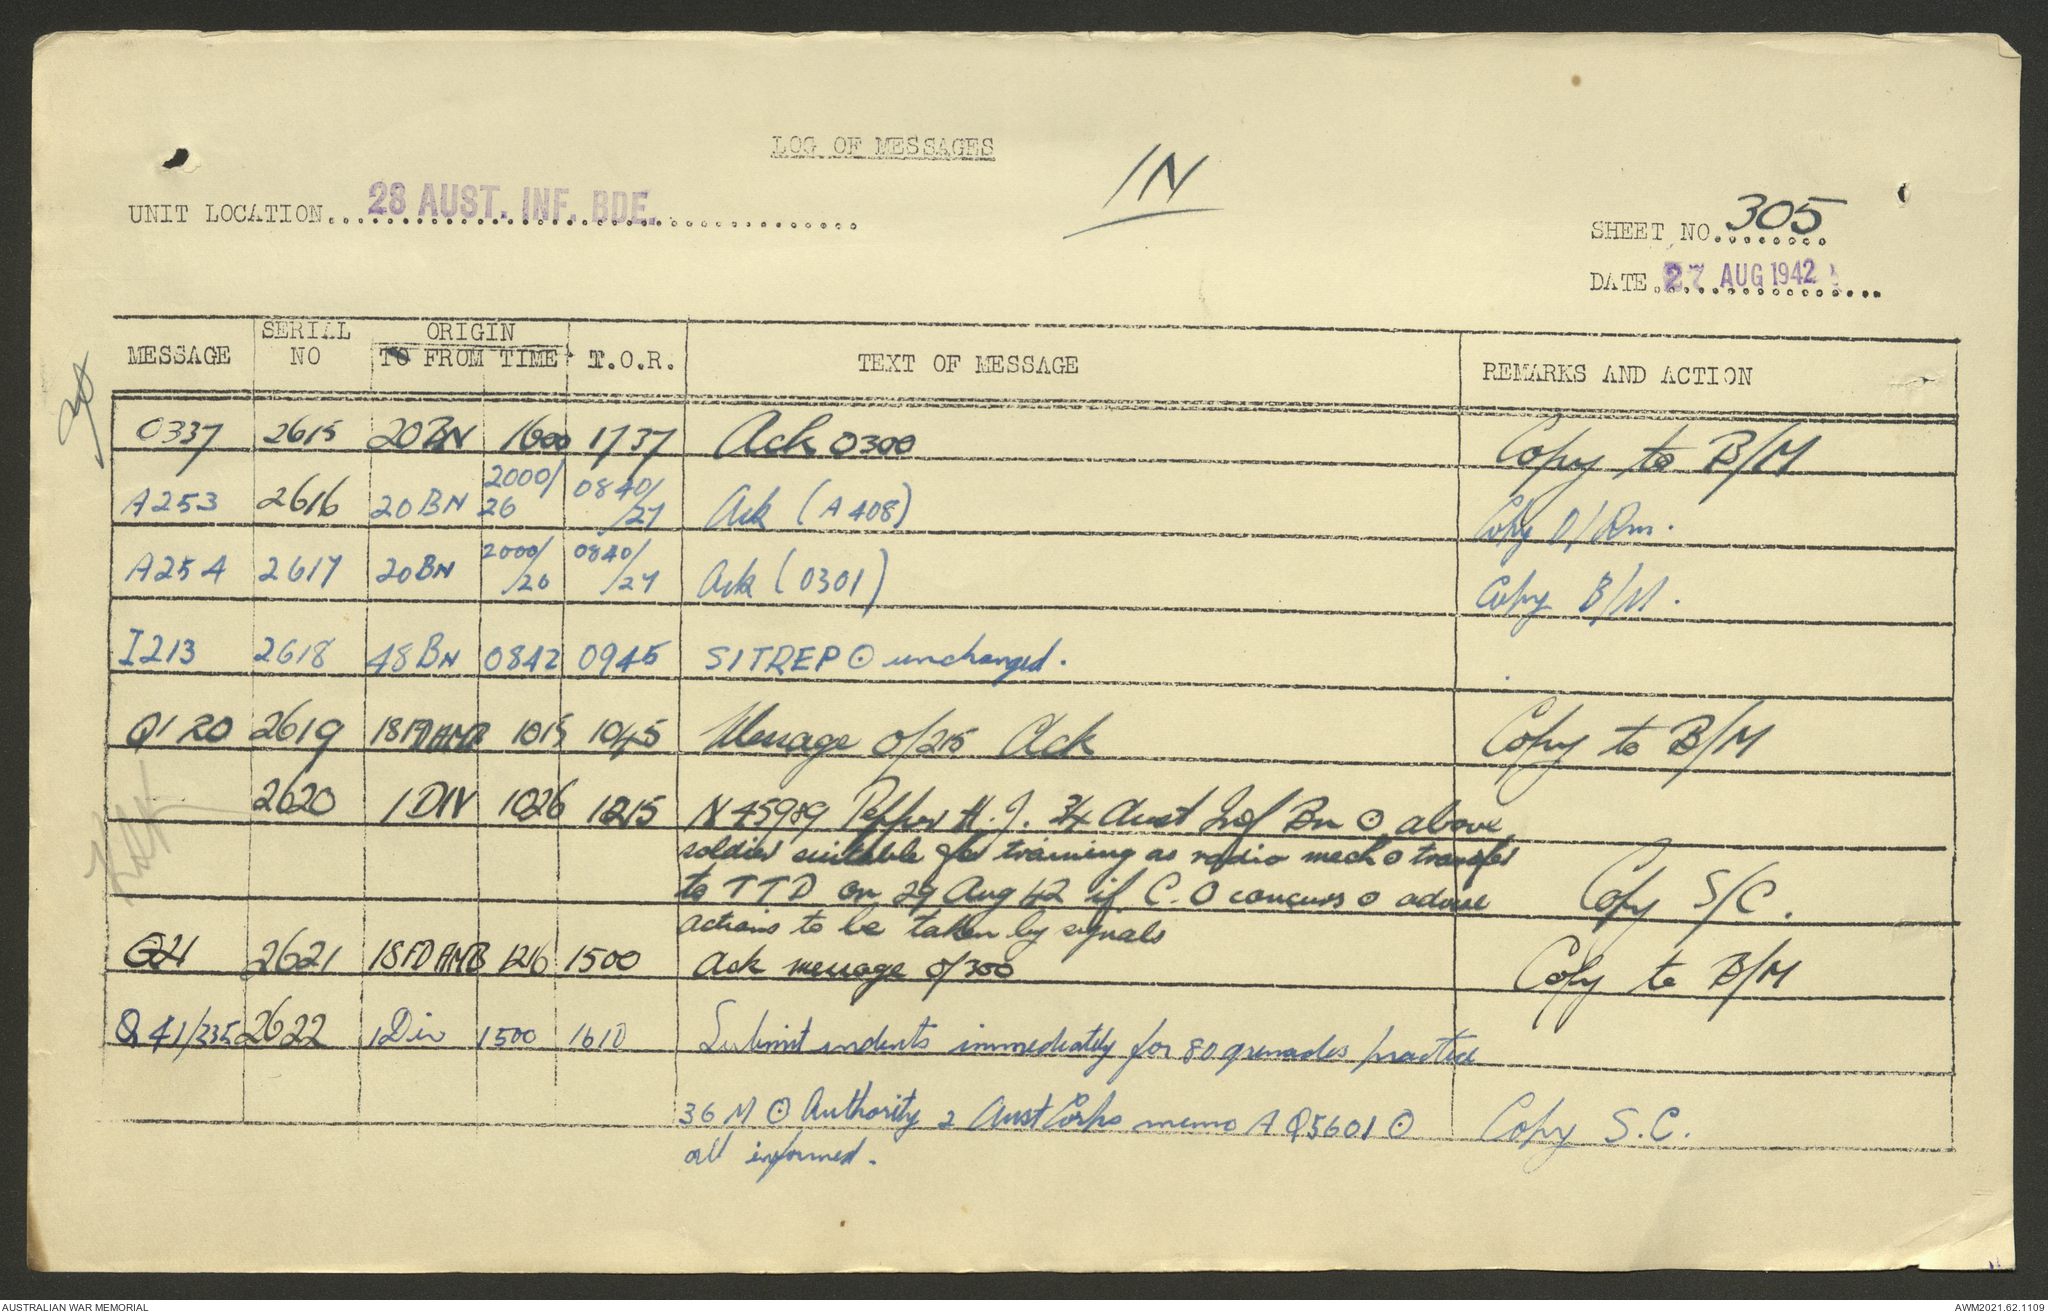 LOG OF MESSAGES
IN
UNIT LOCATION 28 AUST. INF. BDE.
SHEET NO. 305
DATE 27 AUG 1942
MESSAGE SERIAL NO ORIGIN TO FROM TIME T.O.R. TEXT OF MESSAGE REMARKS AND ACTION
O337 2615 20BN 1600 1737 Ack O300 Copy to B/M
A253 2616 20BN 2000/26 0840/27 Ack (A408) Copy O/Rm.
A254 2617 20BN 2000/26 0840/27 Ack (O301) Copy B/M.
I213 2618 48BN 0842 0945 SITREP ⊙ unchanged.
Q120 2619 18FDAMB 1015 1045 Message O/215 Ack Copy to B/M
2620 1 DIV 1026 1215 N45989 Pepper H.J. 34 Aust Inf Bn ⊙ above
soldier suitable for training as radio mech ⊙ transfer
to TTD on 29 Aug 42 if C.O concurs ⊙ advise Copy S/C.
actions to be taken by signals
2621 18FDAMB 1216 1500 Ack message O/300 Copy to B/M
Q41/235 2622 1Div 1500 1610 Submit indents immediately for 80 grenades practice
36 M ⊙ Authority 2 Aust Corps memo AQ5601 ⊙ Copy S.C.
all informed.
AUSTRALIAN WAR MEMORIAL
AWM2021.62.1109